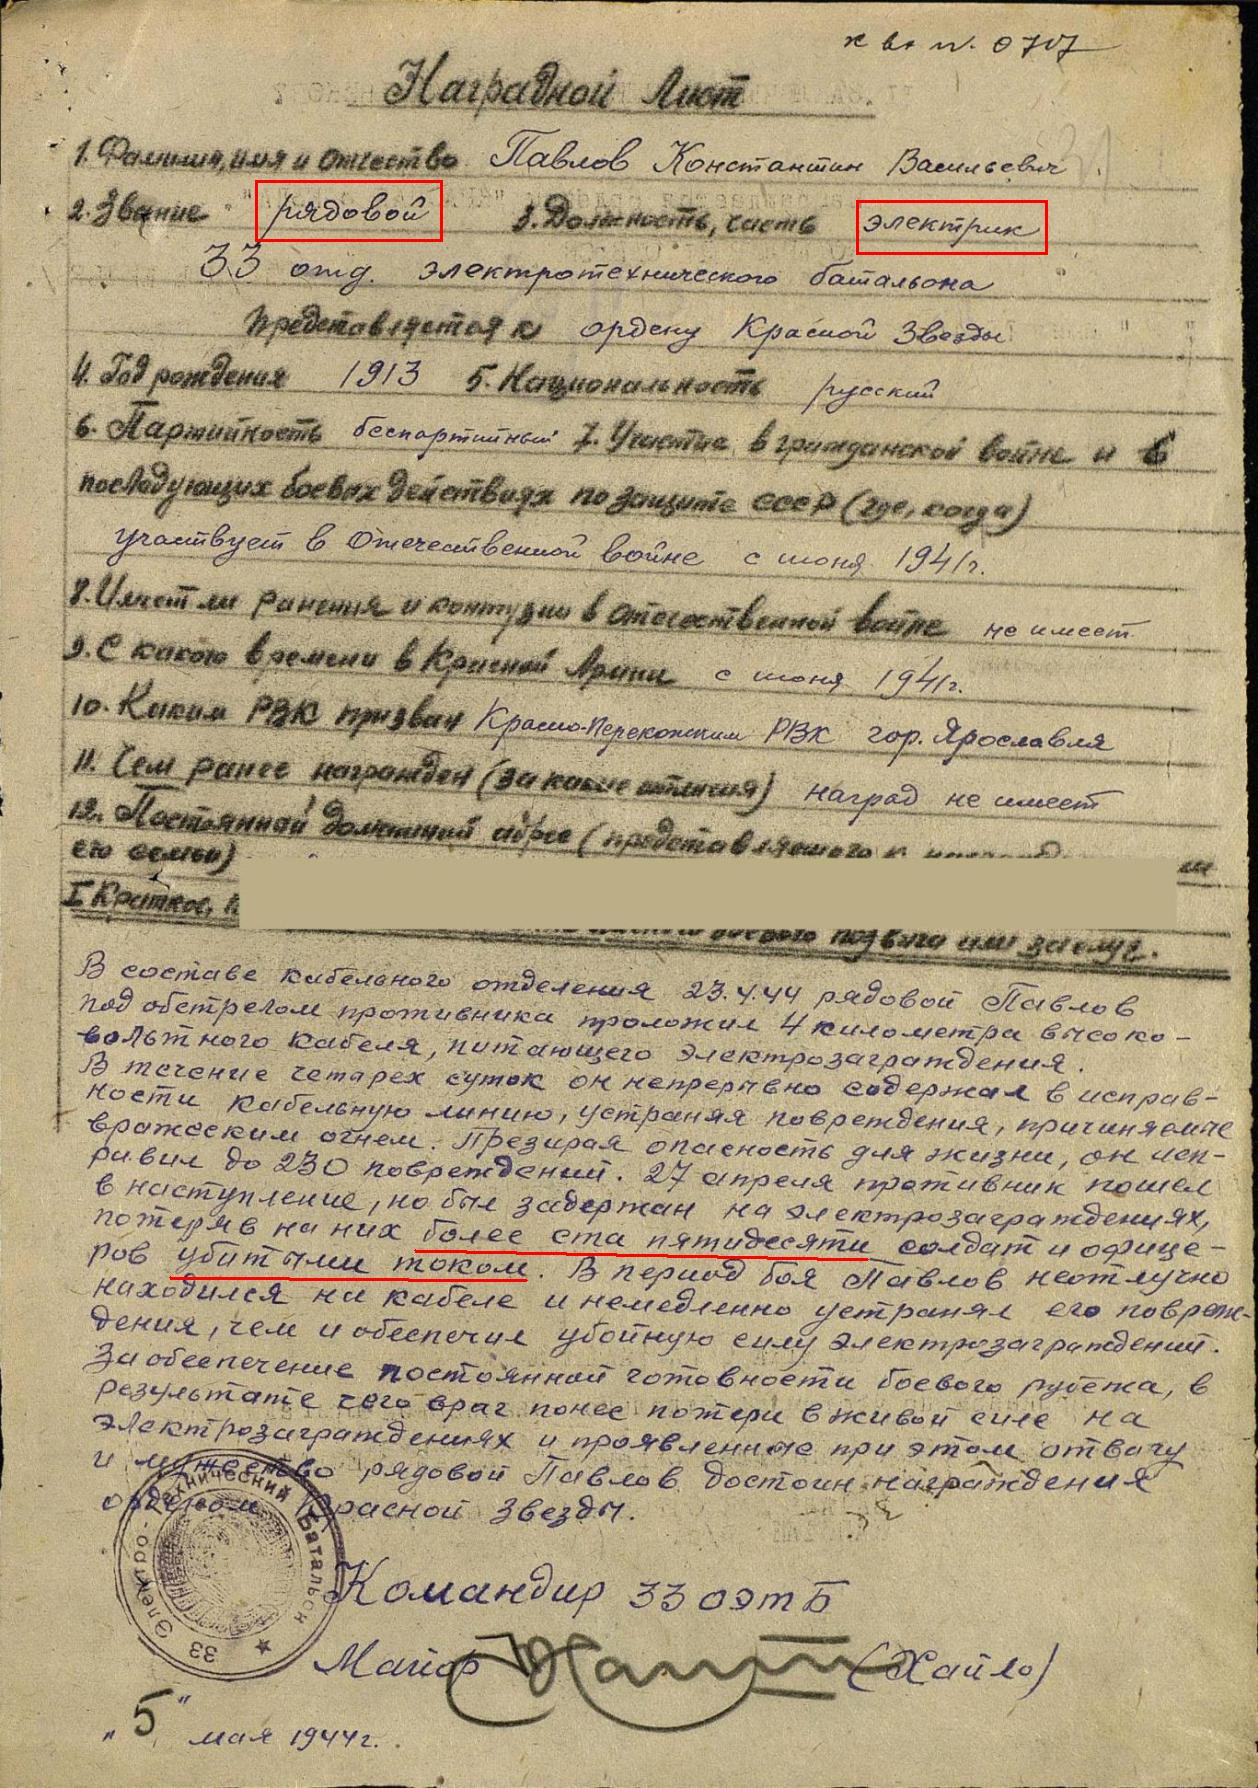 0707
Наградной Лист
1. Фамилия, имя и отчество Павлов Константин Васильевич
2. Звание рядовой 3. Должность, часть электрик
33 отд. электротехнического батальона
Представляется к ордену Красной Звезды
4. Год рождения 1913 5. Национальность русский
6. Партийность беспартийный 7. Участие в гражданской войне и в
последующих боевых действиях по защите СССР (где, когда)
участвует в Отечественной войне с июня 1941г.
8. Имеет ли ранения и контузии в отечественной войне не имеет
9. С какого времени в Красной Армии с июня 1941г.
10. Каким РВК призван Красно-Перекопским РВК гор. Ярославля
11. Чем ранее награжден (за какие отличия) наград не имеет
12. Постоянной домашний адрес (представляемого к
его семьи)
I Краткое,
боевого подвига или заслуг.
В составе кабельного отделения 23.4.44 рядовой Павлов
под обстрелом противника проложил 4 километра высоко-
вольтного кабеля, питающего электрозаграждения.
В течение четарех суток он непрерывно содержал в исправ-
ности кабельную линию, устраняя повреждения, причиняемые
вражеским огнем. Презирая опасность для жизни, он исп-
равил до 230 повреждений. 27 апреля противник пошел
в наступление, но был задержан на электрозаграждениях,
потеряв на них более ста пятидесяти солдат и офице-
ров убитыми током. В период боя Павлов неотлучно
находился на кабеле и немедленно устранял его повреж-
дения, чем и обеспечил убойную силу электрозаграждений.
За обеспечение постоянной готовности боевого рубежа, в
результате чего враг понес потери в живой силе на
электрозаграждениях и проявленные при этом отвагу
и мужество рядовой Павлов достоин награждения
орденом Красной Звезды.
33 Электро-технический Батальон
Командир 33 ОЭТБ
Майор (Хайло)
"5" мая 1944г.